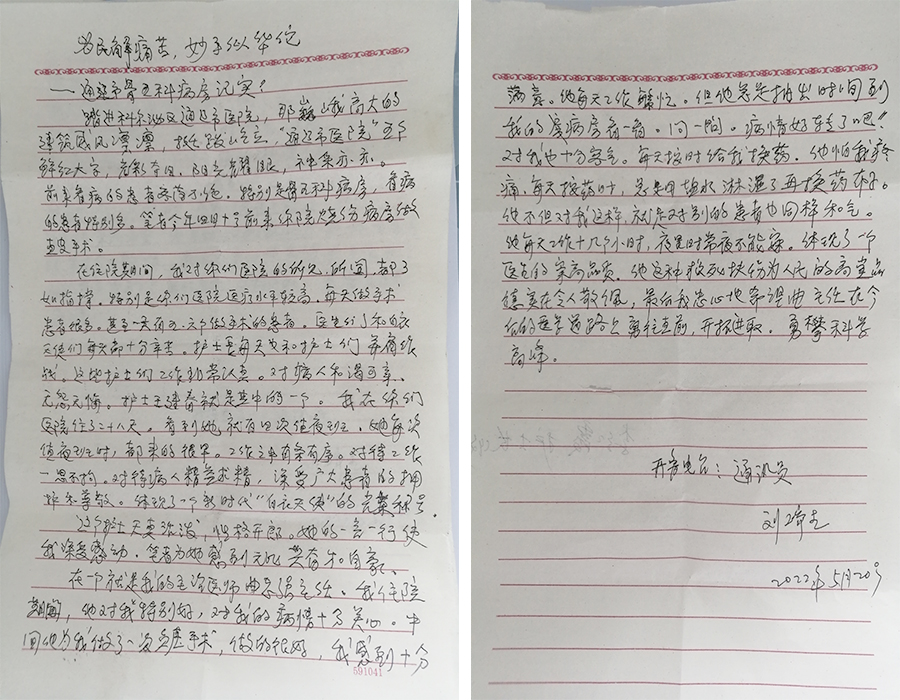 为民解痛苦，妙手似华佗
——通辽市骨五科病房记实
踏进科尔沁区通辽市医院，那巍峨高大的
建筑威风凛凛，挺拔屹立，“通辽市医院”五个
鲜红大字，光彩夺目，阳光耀眼，神采奕奕。
前来看病的患者络绎不绝。特别是骨五科病房，看病
的患者特别多。笔者今年四月十号前来你院烧伤病房做
植皮手术。
在住院期间，我对你们医院的所见，所闻，都了
如指掌。特别是你们医院医疗水平较高，每天做手术
患者很多。甚至一天有五、六个做手术的患者。医生们和白衣
天使们每天都十分辛苦。护士长每天也和护士们并肩作
战。这些护士们工作非常认真。对病人和蔼可亲、
无怨无悔。护士王建春就是其中的一个。我在你们
医院住了二十八天。看到她，就有四次值夜班。她每次
值夜班时，都来的很早。工作主动有条有序。对待工作
一思不苟。对待病人精益求精，深受广大患者的拥
护和尊敬。体现了一个新时代“白衣天使”的光荣称号。
这个护士天真活泼，性格开朗。她的一言一行使
我深受感动。笔者为她感到无比光荣和自豪。
在一个就是我的主治医师曲景强主任。我住院
期间，他对我特别好，对我的病情十分关心。中
间他为我做了一次植皮手术，做的很好，我感到十分
591041
满意。他每天工作繁忙。但他总是抽出时间到
我的房病房看一看。问一问。病情好转了吧！
对我也十分客气。每天按时给我换药。他怕我疼
痛，每天换药时，总是用盐水淋湿了再换药布。
他不但对我这样，就是对别的患者也同样和气。
他每天工作十几个小时，夜里时常病不能寐。体现了一个
医生的崇高品质。他这种救死扶伤为人民的高尚品
德实在令人敬佩，最后我忠心地希望曲主任在今
后的医学道路上勇往直前，开拓进取，勇攀科学
高峰。
开鲁电台：通讯员
2022年5月20号